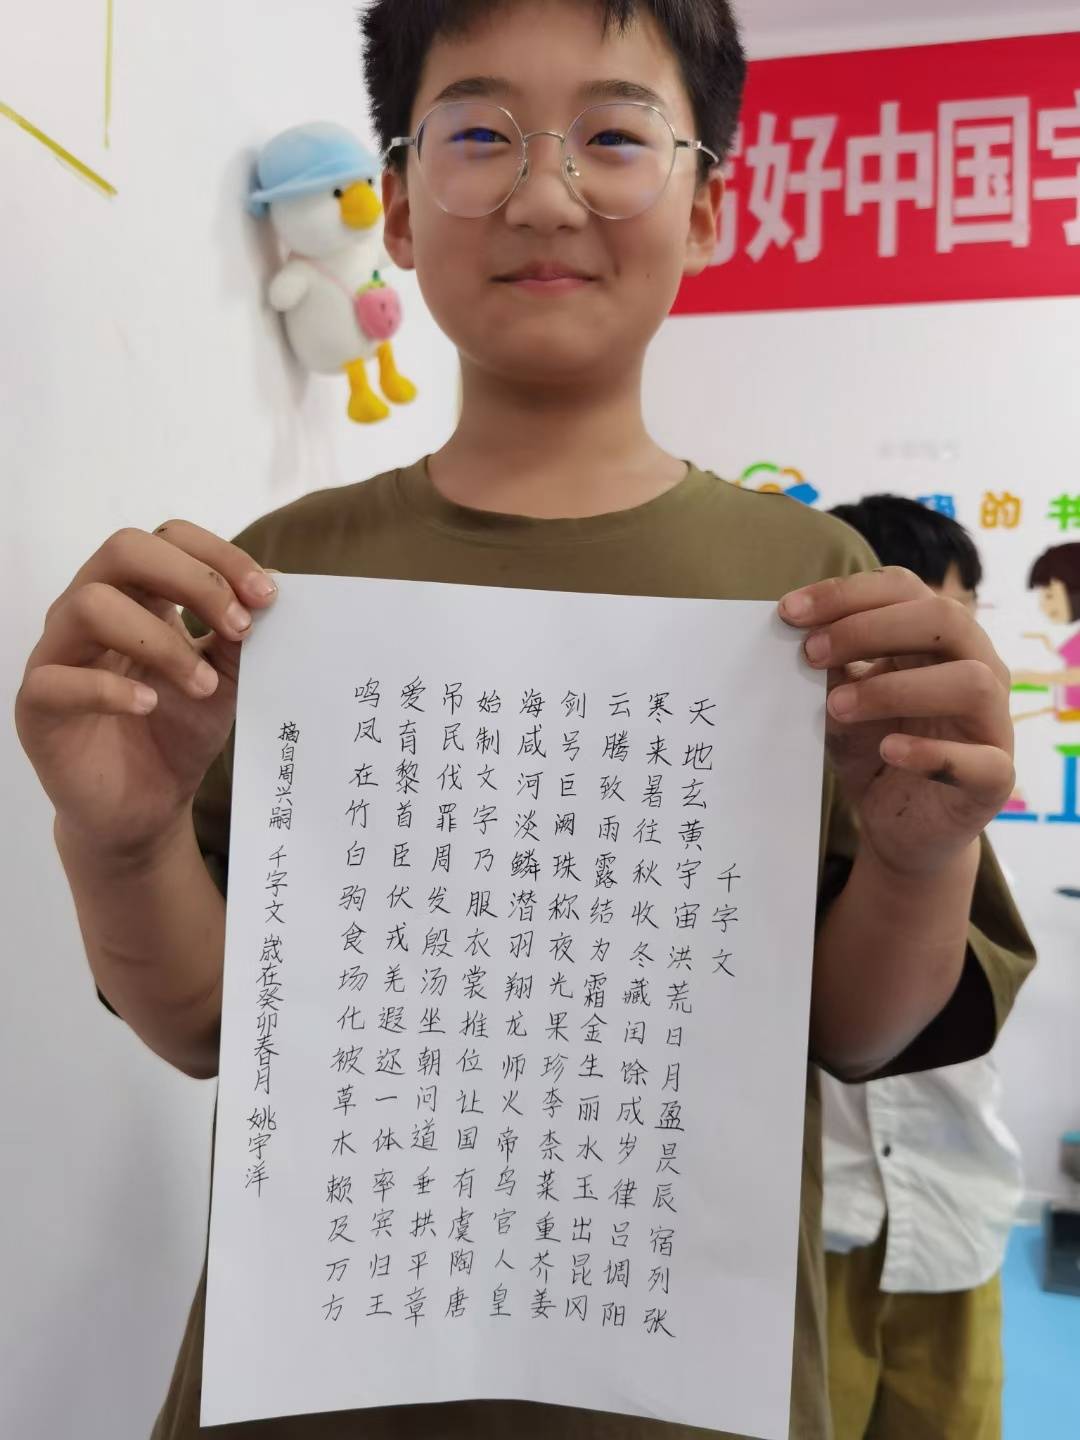 好中国字
的书
千字文
天地玄黄宇宙洪荒日月盈昃辰宿列张
寒来暑往秋收冬藏闰馀成岁律吕调阳
云腾致雨露结为霜金生丽水玉出昆冈
剑号巨阙珠称夜光果珍李柰菜重芥姜
海咸河淡鳞潜羽翔龙师火帝鸟官人皇
始制文字乃服衣裳推位让国有虞陶唐
吊民伐罪周发殷汤坐朝问道垂拱平章
爱育黎首臣伏戎羌遐迩一体率宾归王
鸣凤在竹白驹食场化被草木赖及万方
摘自周兴嗣 千字文 歳在癸卯春月 姚宇洋